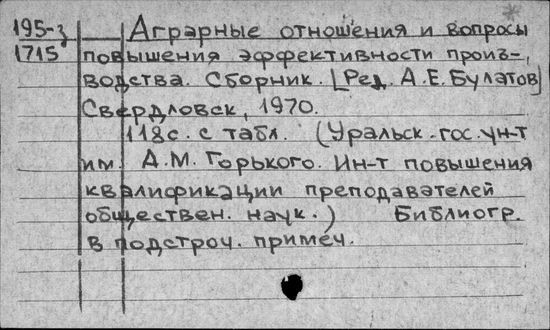 195-3 Аграрные отношения и вопросы
1715 повышения эффективности произ-
водства. Сборник. [Ред. А.Е.Булатов]
Свердловск, 1970.
118с. с табл. (Уральск.гос.ун-т
им. А.М. Горького. Ин-т повышения
квалификации преподавателей
обществен. наук.) Библиогр.
в подстроч. примеч.